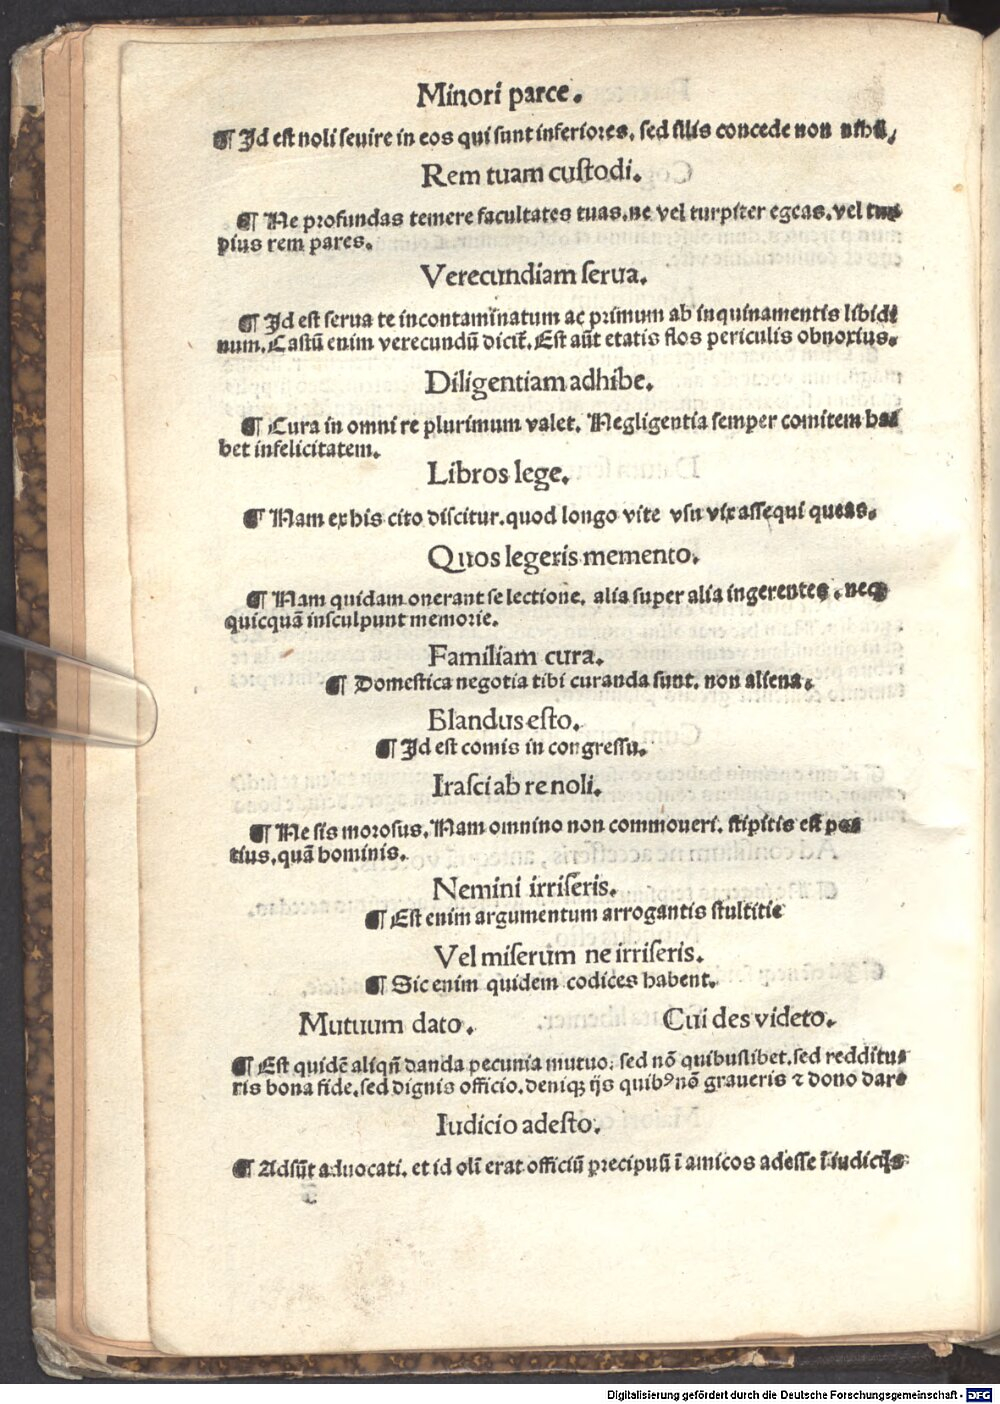 Minori parce.
¶ Id est noli seuire in eos qui sunt inferiores, sed illis concede non nihil,
Rem tuam custodi.
¶ Ne profundas temere facultates tuas.ne vel turpiter egeas.vel tur
pius rem pares.
Verecundiam serua.
¶ Id est serua te incontaminatum ac primum ab inquinamentis libidi
num.Castū enim verecundū dicit̃.Est aūt etatis flos periculis obnoxius.
Diligentiam adhibe.
¶ Cura in omni re plurimum valet. Negligentia semper comitem ha
bet infelicitatem.
Libros lege.
¶ Nam ex his cito discitur.quod longo vite vsu vix assequi queas.
Quos legeris memento.
¶ Nam quidam onerant se lectione, alia super alia ingerentes . neqꝫ
quicquā insculpunt memorie.
Familiam cura.
¶ Domestica negotia tibi curanda sunt. non aliena.
Blandus esto.
¶ Id est comis in congressu.
Irasci ab re noli.
¶ Ne sis morosus. Nam omnino non commoueri. stipitis est po
tius.quā hominis.
Nemini irriseris.
¶ Est enim argumentum arrogantis stultitie
Vel miserum ne irriseris.
¶ Sic enim quidem codices habent.
Mutuum dato. Cui des videto.
¶ Est quidē aliqñ danda pecunia mutuo: sed nō quibuslibet.sed redditu
ris bona fide.sed dignis officio.deniqꝫ ijs quibꝰ nō graueris ⁊ dono dare
Iudicio adesto.
¶ Adsūt aduocati. et id olī erat officiū precipuū ī amicos adesse ī iudicijs
Digitalisierung gefördert durch die Deutsche Forschungsgemeinschaft - DFG